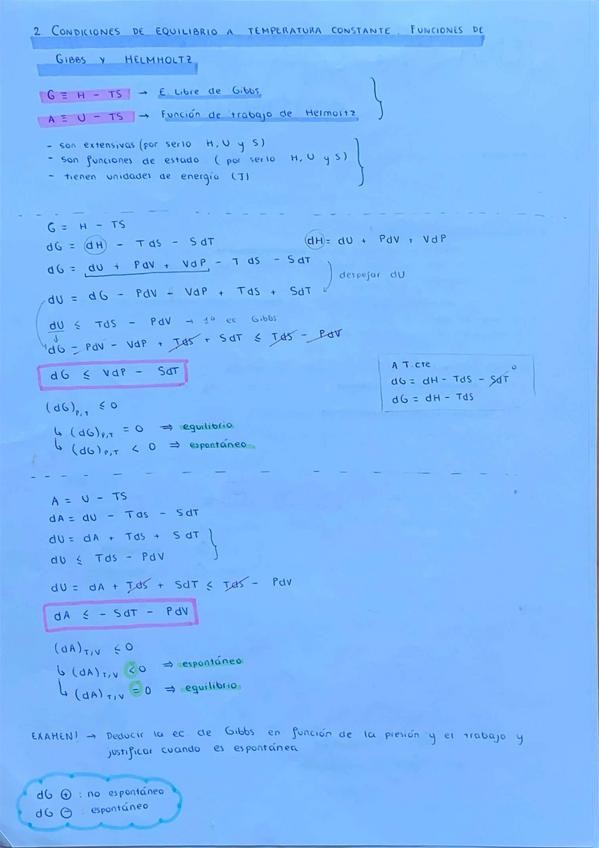 2 CONDICIONES DE EQUILIBRIO A TEMPERATURA CONSTANTE. FUNCIONES DE
GIBBS Y HELMHOLTZ
G ≡ H - TS → E. Libre de Gibbs
A ≡ U - TS → Función de trabajo de Helmoltz
- son extensivas (por serlo H, U y S)
- son funciones de estado (por serlo H, U y S)
- tienen unidades de energía (J)
G = H - TS
dG = dH - TdS - SdT
dH = dU + PdV + VdP
dG = dU + PdV + VdP - TdS - SdT
despejar dU
dU = dG - PdV - VdP + TdS + SdT
dU ≤ TdS - PdV → 1ª ec Gibbs
dG - PdV - VdP + TdS + SdT ≤ TdS - PdV
dG ≤ VdP - SdT
A T. cte
dG = dH - TdS - SdT 0
dG = dH - TdS
(dG)P,T ≤ 0
↳ (dG)P,T = 0 ⇒ equilibrio
↳ (dG)P,T < 0 ⇒ espontáneo
A = U - TS
dA = dU - TdS - SdT
dU = dA + TdS + SdT
dU ≤ TdS - PdV
dU = dA + TdS + SdT ≤ TdS - PdV
dA ≤ - SdT - PdV
(dA)T,V ≤ 0
↳ (dA)T,V < 0 ⇒ espontáneo
↳ (dA)T,V = 0 ⇒ equilibrio
EXAMEN! → Deducir la ec de Gibbs en función de la presión y el trabajo y
justificar cuando es espontánea
dG ⊕ : no espontáneo
dG ⊖ : espontáneo